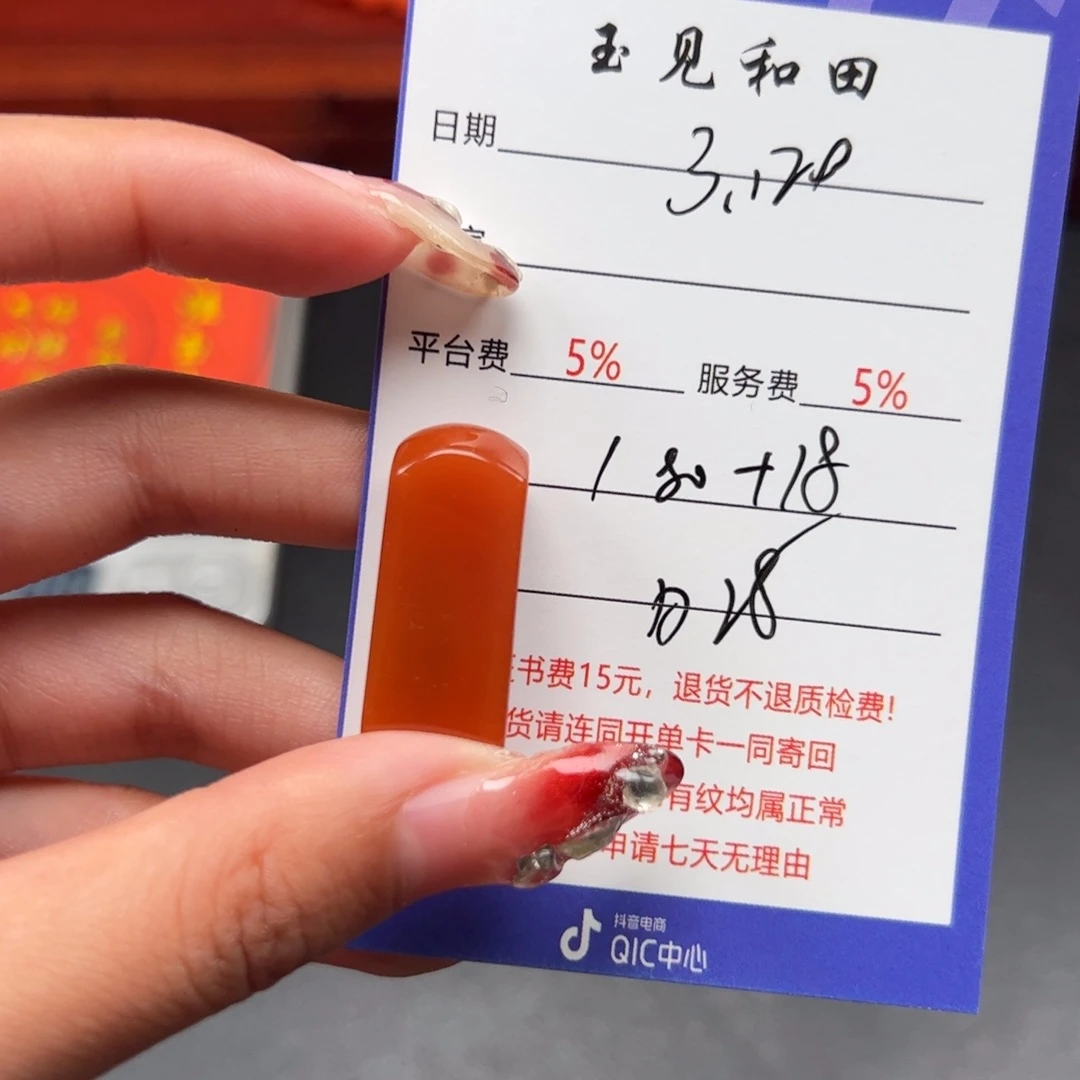 玉见和田
日期 3.128
平台费 5% 服务费 5%
+18
书费15元，退货不退质检费!
货请连同开单卡一同寄回
有纹均属正常
申请七天无理由
抖音电商
QIC中心